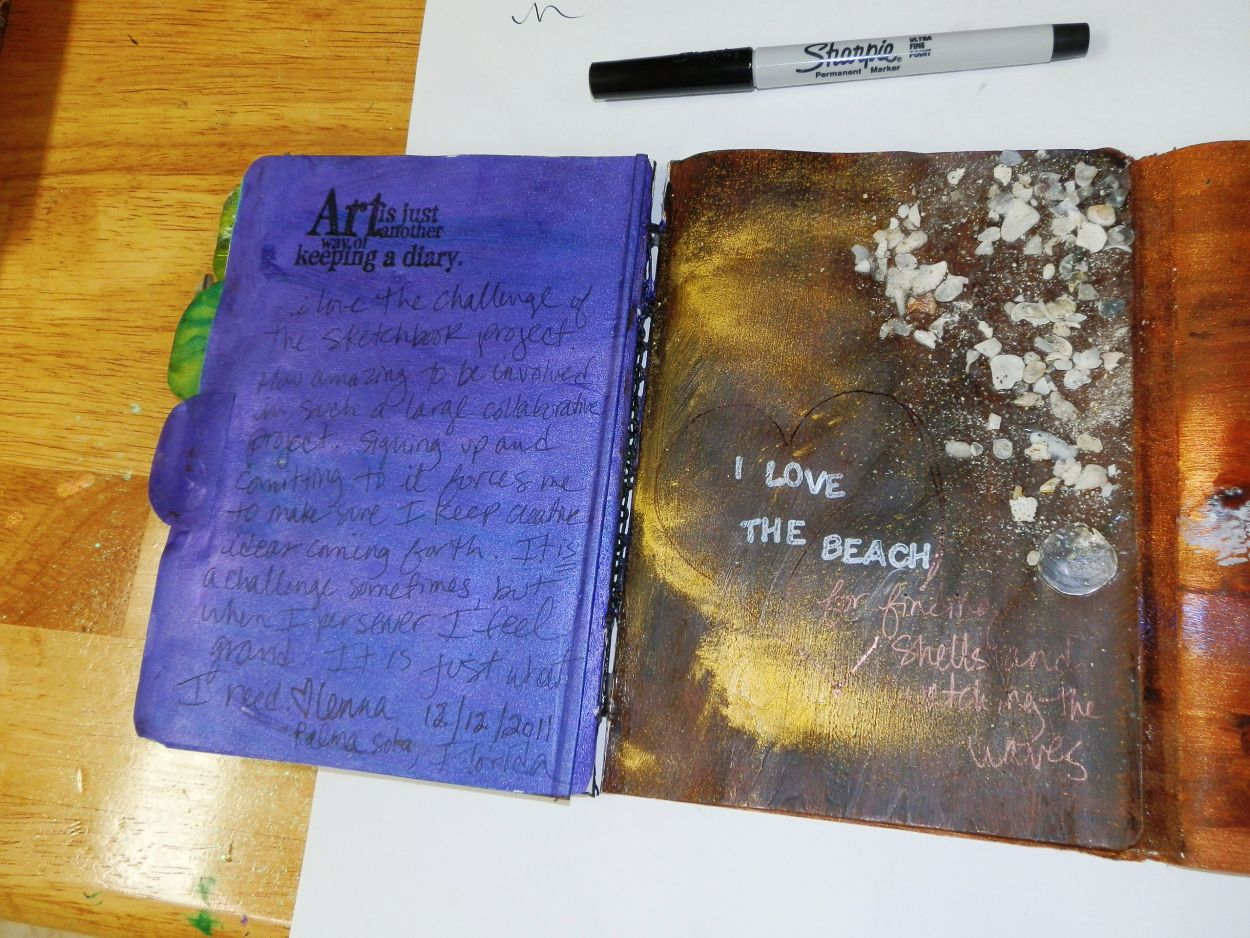 Sharpie®
Permanent Marker
ULTRA
FINE
POINT
Art is just
another
way of
keeping a diary.
i love the challenge of
the sketchbook project
How amazing to be involved
in such a large collaborative
project. Signing up and
comitting to it forces me
to make sure I keep creative
ideas coming forth. It is
a challenge sometimes, but
when I persever I feel
grand. It is just what
I need ♡ lenna 12/12/2011
Palma Sola, Florida
I LOVE
THE BEACH
for finding
shells and
watching the
waves